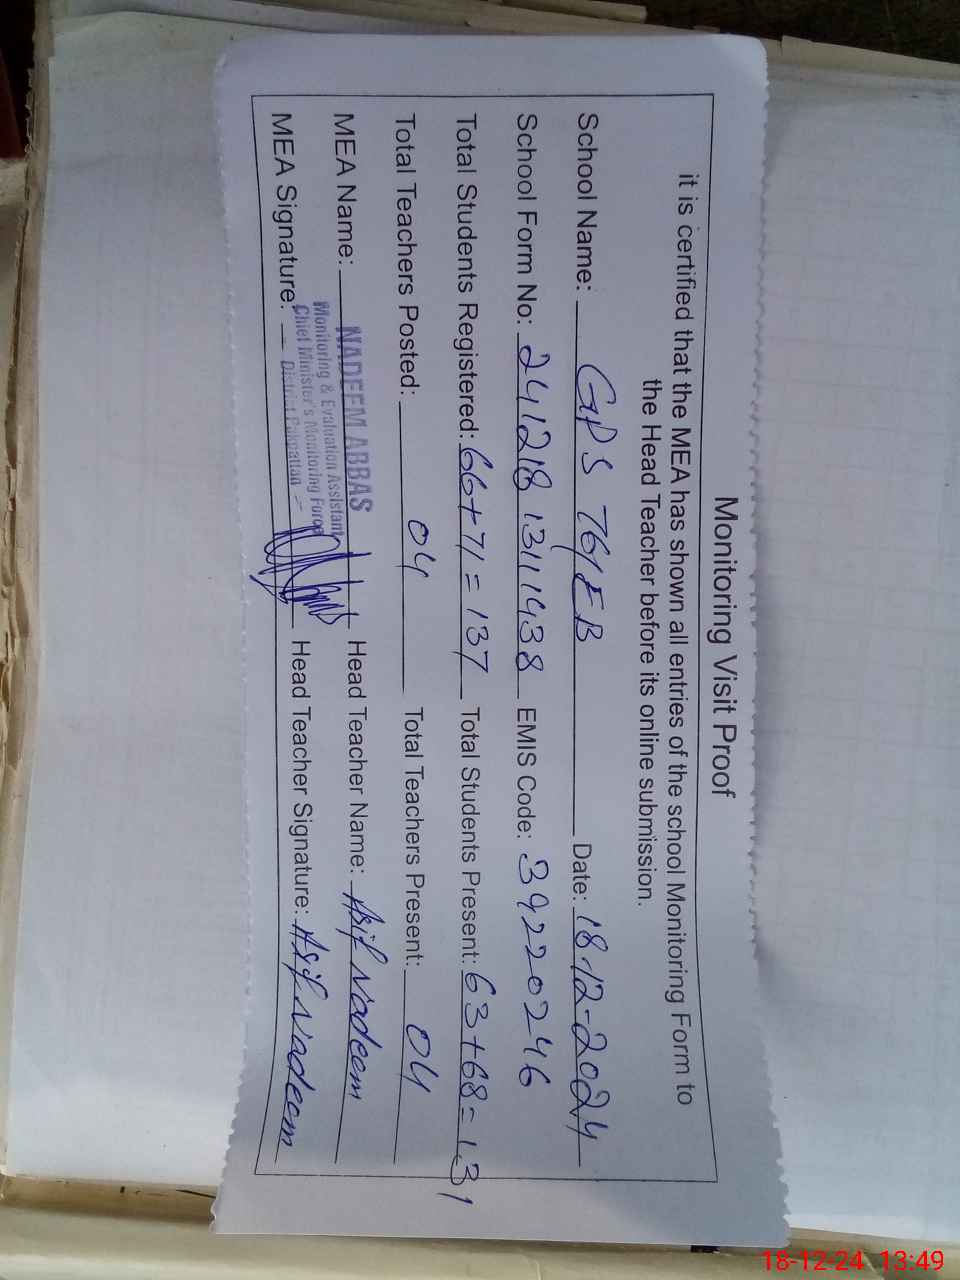 Monitoring Visit Proof
it is certified that the MEA has shown all entries of the school Monitoring Form to
the Head Teacher before its online submission.
School Name: GPS 76/EB Date: 18-12-2024
School Form No: 2412181311438 EMIS Code: 39220246
Total Students Registered: 66+71=137 Total Students Present: 63+68=131
Total Teachers Posted: 04 Total Teachers Present: 04
MEA Name: NADEEM ABBAS Head Teacher Name: Asif Nadeem
Monitoring & Evaluation Assistant
Chief Minister's Monitoring Force
District Pakpattan
MEA Signature: Head Teacher Signature: Asif Nadeem
18-12-24 13:49